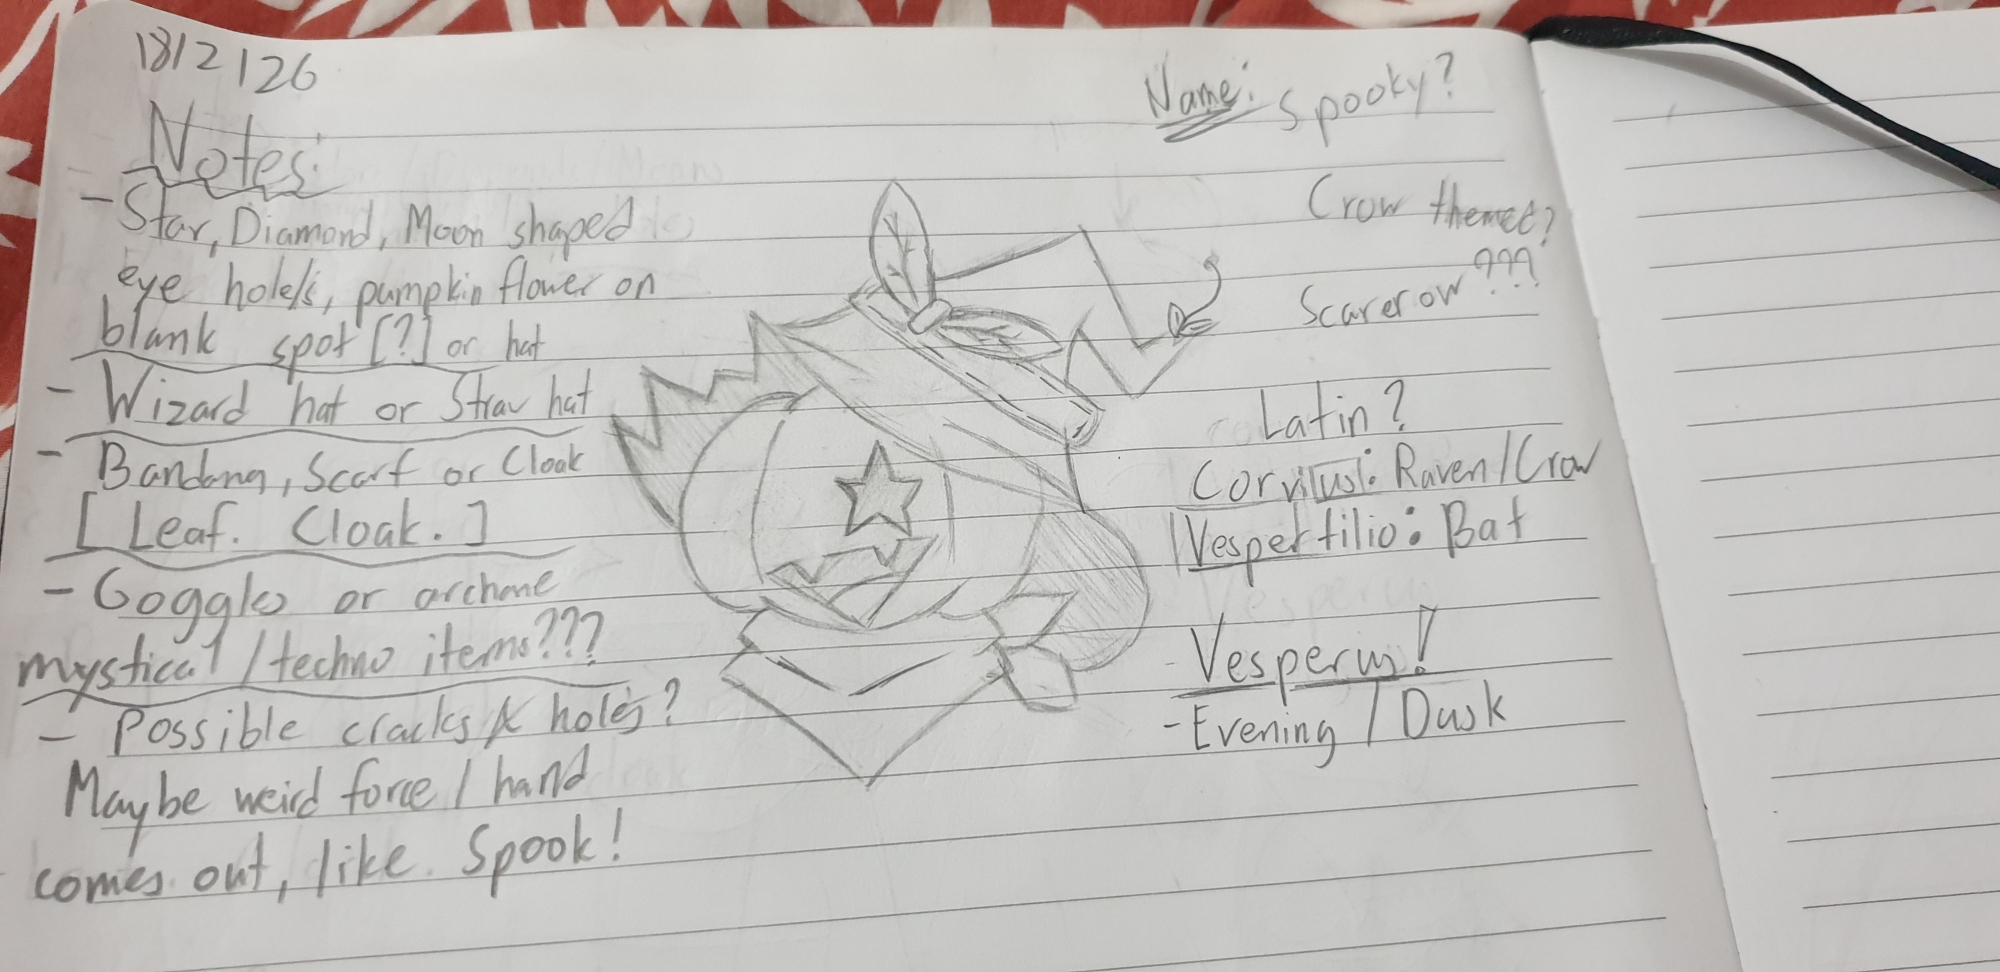 18/2/26
Notes:
- Star, Diamond, Moon shaped
eye hole/s, pumpkin flower on
blank spot [?] or hat
- Wizard hat or Straw hat
- Bandana, Scarf or Cloak
[Leaf. Cloak.]
- Goggles or archane
mystical / techno items???
- Possible cracks & holes?
Maybe weird force / hand
comes out, like Spook!
Name: Spooky?
Crow themed?
Scarerow???
Latin?
Corvitus: Raven/Crow
Vespertilio: Bat
- Vesperus!
- Evening / Dusk